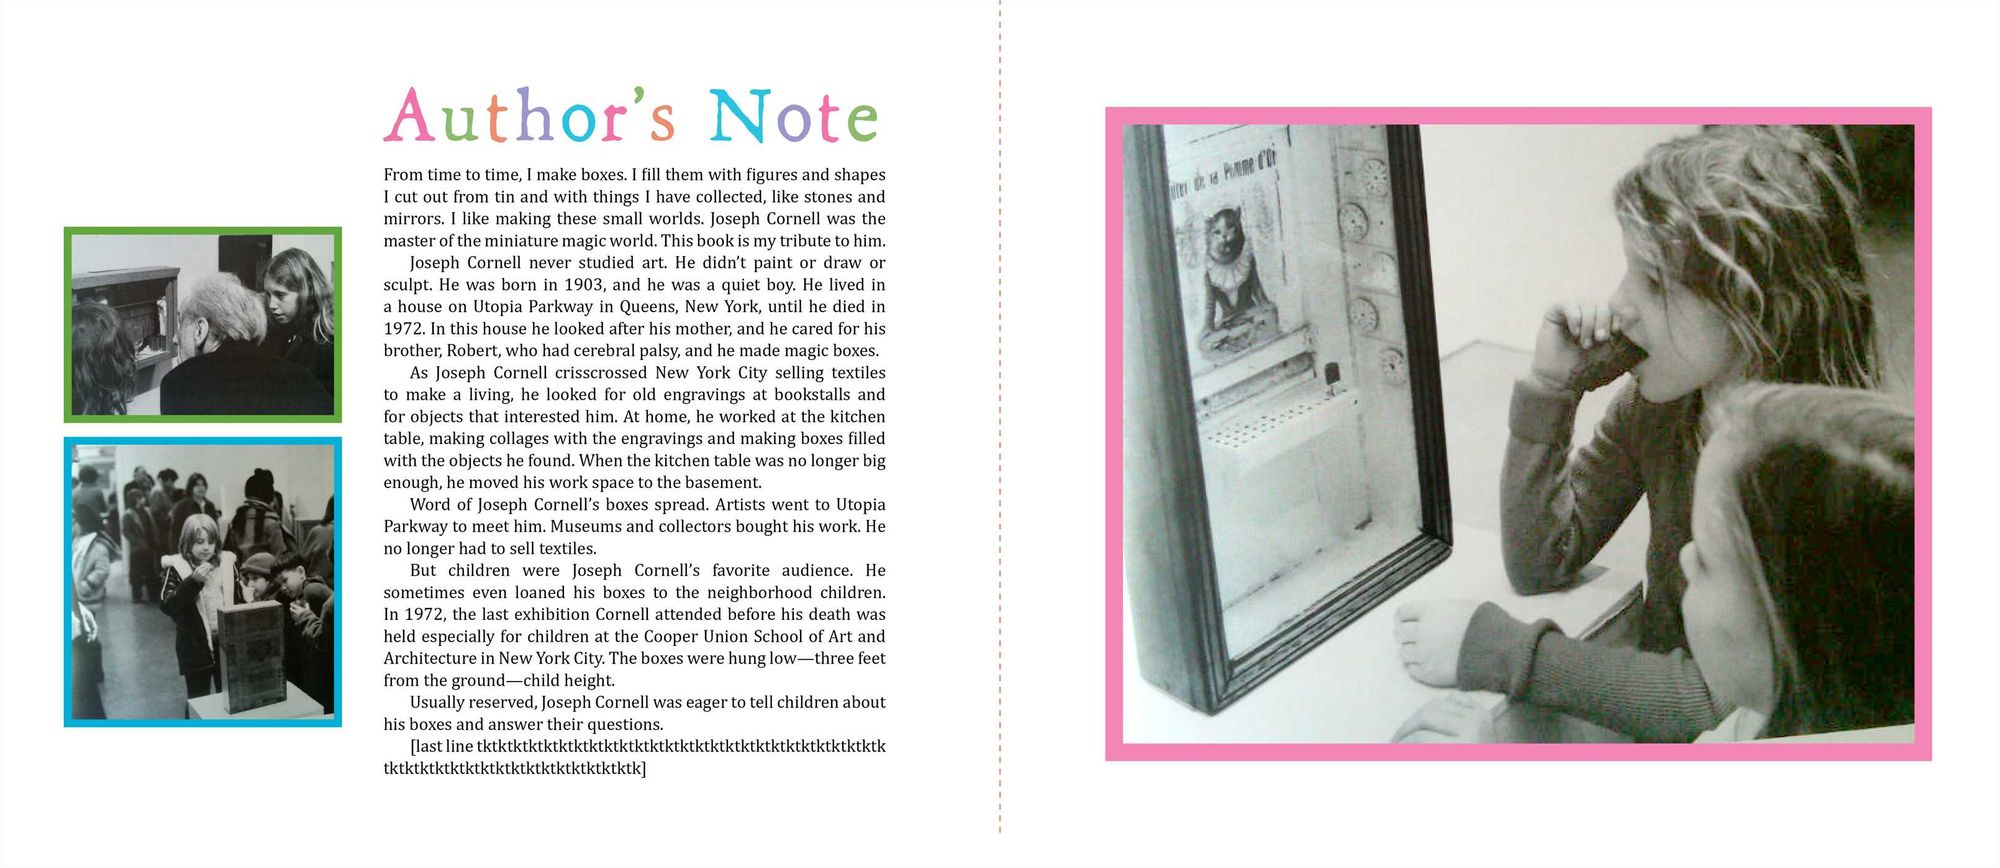 Author's Note
From time to time, I make boxes. I fill them with figures and shapes
I cut out from tin and with things I have collected, like stones and
mirrors. I like making these small worlds. Joseph Cornell was the
master of the miniature magic world. This book is my tribute to him.
Joseph Cornell never studied art. He didn’t paint or draw or
sculpt. He was born in 1903, and he was a quiet boy. He lived in
a house on Utopia Parkway in Queens, New York, until he died in
1972. In this house he looked after his mother, and he cared for his
brother, Robert, who had cerebral palsy, and he made magic boxes.
As Joseph Cornell crisscrossed New York City selling textiles
to make a living, he looked for old engravings at bookstalls and
for objects that interested him. At home, he worked at the kitchen
table, making collages with the engravings and making boxes filled
with the objects he found. When the kitchen table was no longer big
enough, he moved his work space to the basement.
Word of Joseph Cornell’s boxes spread. Artists went to Utopia
Parkway to meet him. Museums and collectors bought his work. He
no longer had to sell textiles.
But children were Joseph Cornell’s favorite audience. He
sometimes even loaned his boxes to the neighborhood children.
In 1972, the last exhibition Cornell attended before his death was
held especially for children at the Cooper Union School of Art and
Architecture in New York City. The boxes were hung low—three feet
from the ground—child height.
Usually reserved, Joseph Cornell was eager to tell children about
his boxes and answer their questions.
[last line tktktktktktktktktktktktktktktktktktktktktktktktktktktk
tktktktktktktktktktktktktktktktktk]
de la Pomme d'Or